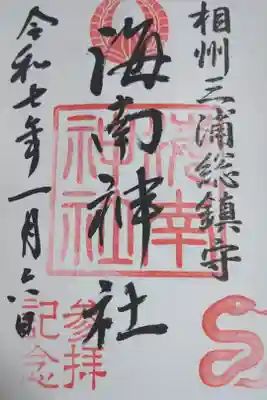 相州三浦総鎮守
海南神社
令和七年一月六日
参拝
記念